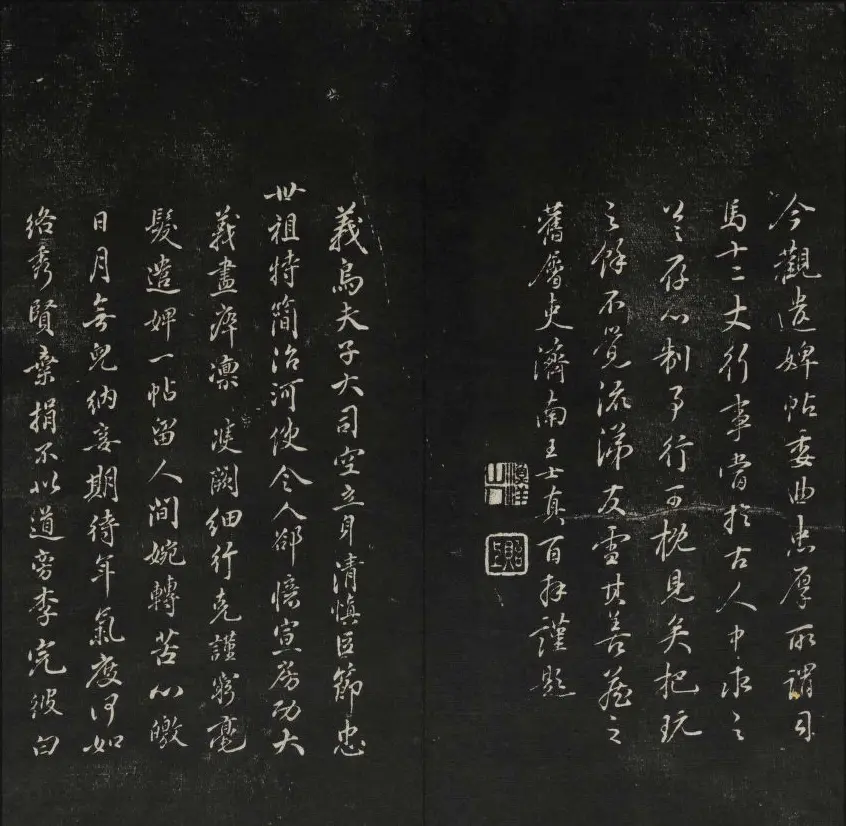 今觀遣婢帖委曲忠厚所謂司
馬十二丈行事當於古人中求之
公之存心制事行五概見矣把玩
之餘不覺流涕友雪其善藏之
舊屬吏濟南王士真百拜謹題
義烏夫子大司空立身清慎臣節忠
世祖特簡治河使令人卻憶宣房功大
義盡瘁凜 陛闕細行克謹矜毫
髮遣婢一帖留人間婉轉苦心皦
日月無兒納妾期待年氣度何如
絡秀賢棄捐不以道旁李完彼白